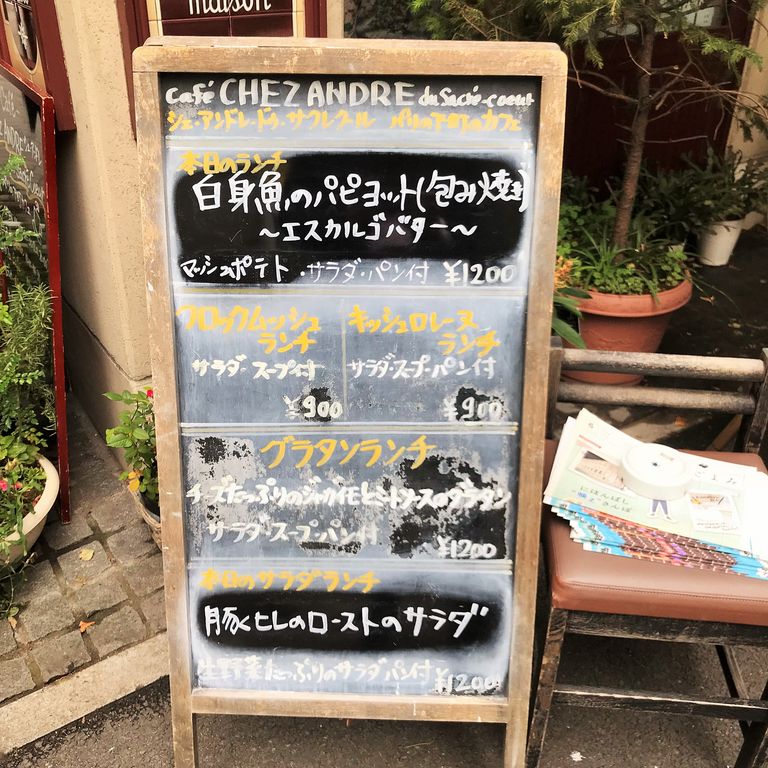 maison
café CHEZ ANDRE du Sacré-coeur
シェ・アンドレ・ドゥ・サクレクール パリの下町のカフェ
本日のランチ
白身魚のパピヨット(包み焼き)
～エスカルゴバター～
マッシュポテト・サラダ・パン付 ¥1200
クロックムッシュ
ランチ
サラダ・スープ付
¥900
キッシュロレーヌ
ランチ
サラダ・スープ・パン付
¥900
グラタンランチ
チーズたっぷりのジャガイモとミートソースのグラタン
サラダ・スープ・パン付
¥1200
本日のサラダランチ
豚ヒレのローストのサラダ
生野菜たっぷりのサラダ パン付 ¥1200
にほんばし
さんぽ